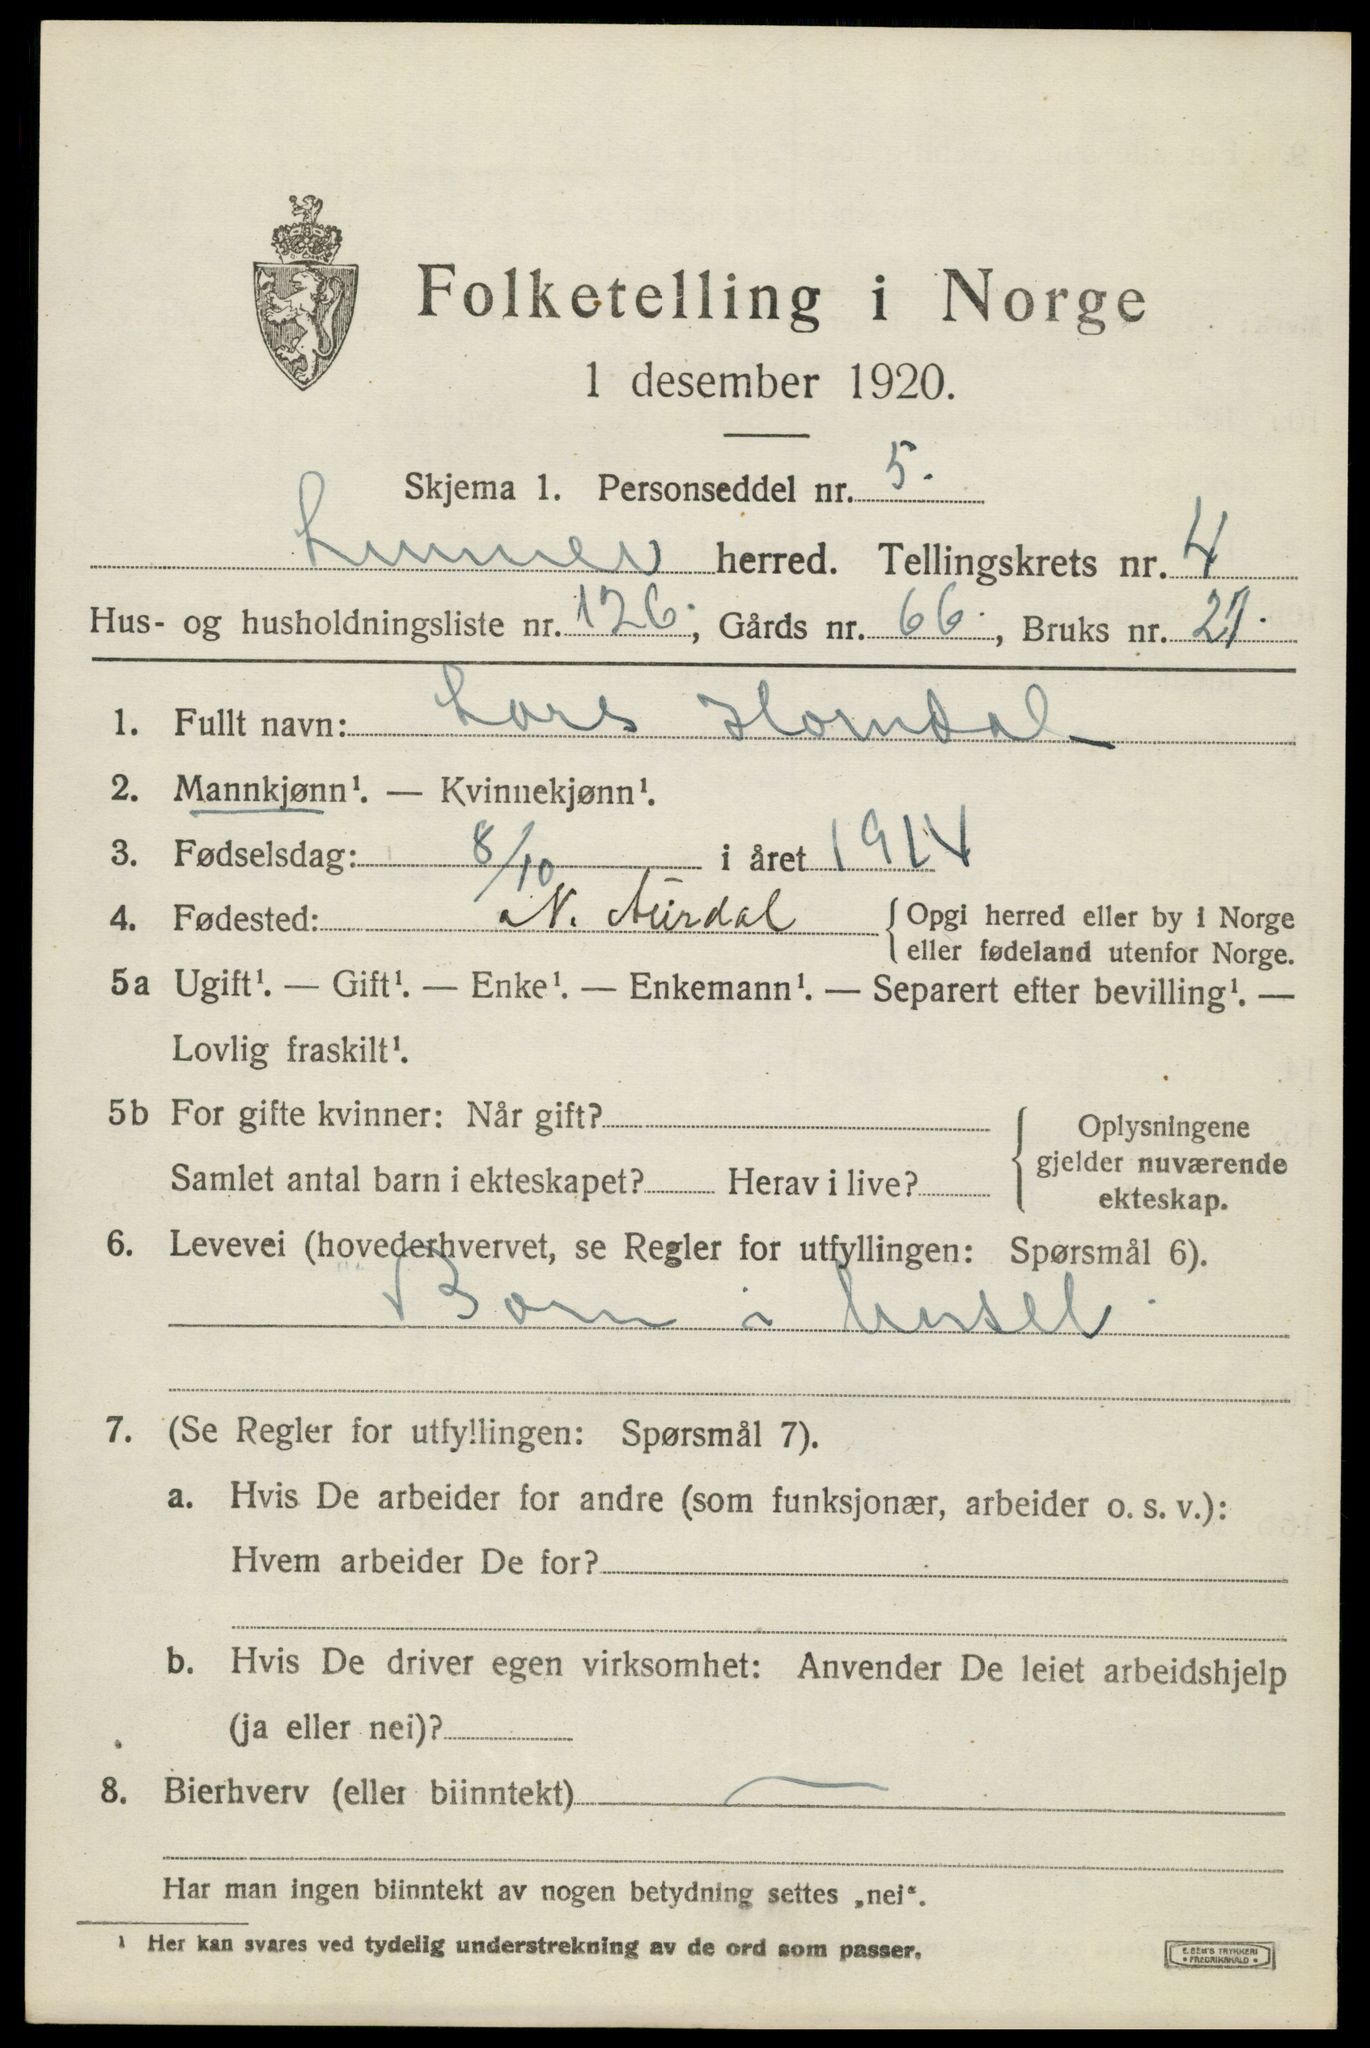 Folketelling i Norge
1 desember 1920.
Skjema 1. Personseddel nr. 5.
Lunner herred. Tellingskrets nr. 4
Hus- og husholdningsliste nr. 126., Gårds nr. 66., Bruks nr. 27.
1. Fullt navn: Lars Horndal
2. Mannkjønn¹. — Kvinnekjønn¹.
3. Fødselsdag: 8/10 i året 1914
4. Fødested: N. Aurdal {Opgi herred eller by i Norge
eller fødeland utenfor Norge.
5a Ugift¹. — Gift¹. — Enke¹. — Enkemann¹. — Separert efter bevilling¹. —
Lovlig fraskilt¹.
5b For gifte kvinner: Når gift?
Samlet antal barn i ekteskapet? Herav i live?
Oplysningene
gjelder nuværende
ekteskap.
6. Levevei (hovederhvervet, se Regler for utfyllingen: Spørsmål 6).
Barn i huset.
7. (Se Regler for utfyllingen: Spørsmål 7).
a. Hvis De arbeider for andre (som funksjonær, arbeider o. s. v.):
Hvem arbeider De for?
b. Hvis De driver egen virksomhet: Anvender De leiet arbeidshjelp
(ja eller nei)?
8. Bierhverv (eller biinntekt) —
Har man ingen biinntekt av nogen betydning settes „nei“.
¹ Her kan svares ved tydelig understrekning av de ord som passer.
E. SEM'S TRYKKERI
• FREDRIKSHALD •